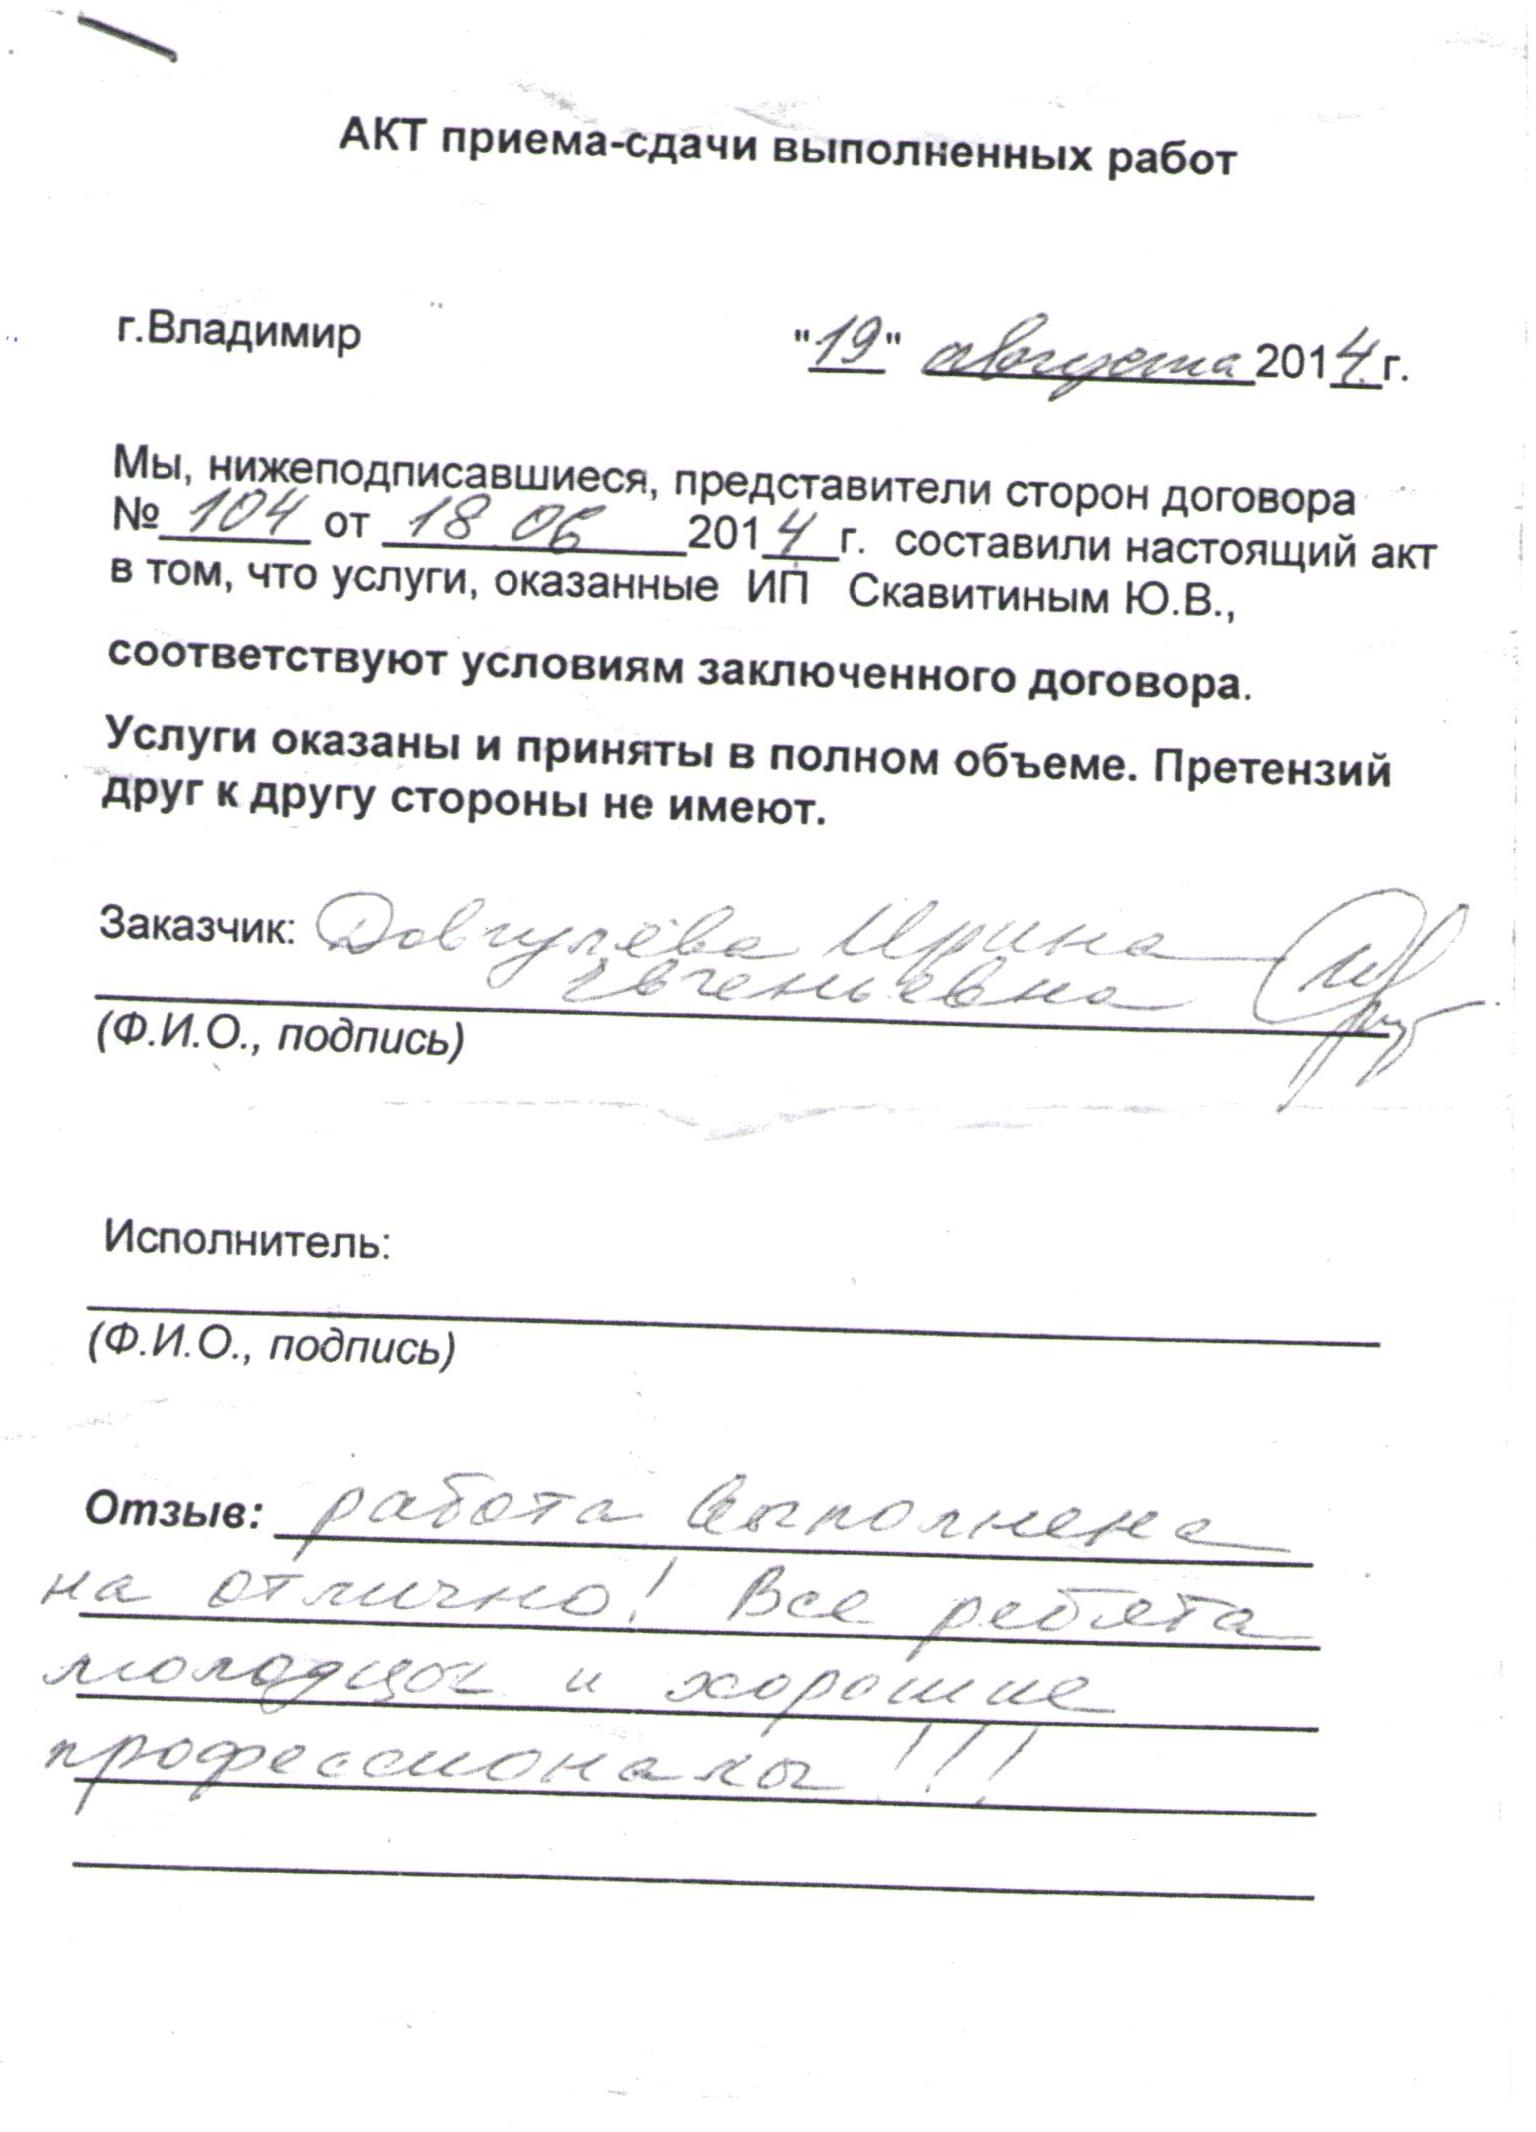 АКТ приема-сдачи выполненных работ
г.Владимир "19" августа 2014 г.
Мы, нижеподписавшиеся, представители сторон договора
№ 104 от 18 06 2014 г. составили настоящий акт
в том, что услуги, оказанные ИП Скавитиным Ю.В.,
соответствуют условиям заключенного договора.
Услуги оказаны и приняты в полном объеме. Претензий
друг к другу стороны не имеют.
Заказчик: Довгулёва Ирина
Евгеньевна
(Ф.И.О., подпись)
Исполнитель:
(Ф.И.О., подпись)
Отзыв: работа выполнена
на отлично! Все ребята
молодцы и хорошие
профессионалы!!!